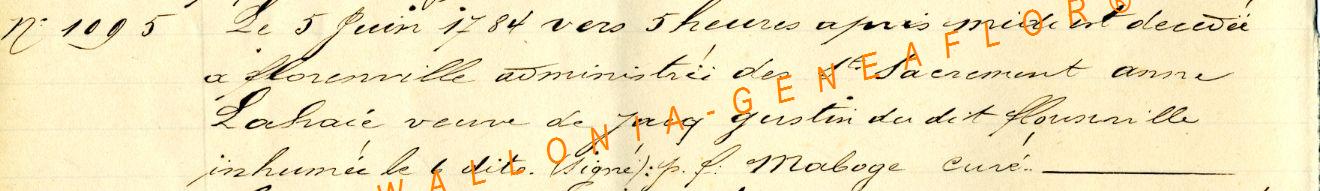 N° 1095 Le 5 Juin 1784 vers 5 heures après midi est decedée
a florenville administrée des St Sacrement anne
Lahaie veuve de Jacq gustin du dit florenville
inhumée le 6 dito. (signé): p. f. Maboge curé.
WALLONIA-GENEAFLOR©